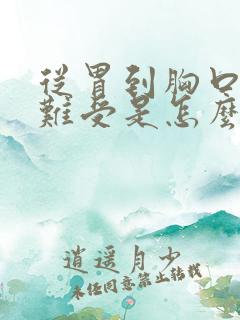 從胃到胸口
難受是怎麼
逍遥月少
未经同意禁止转载